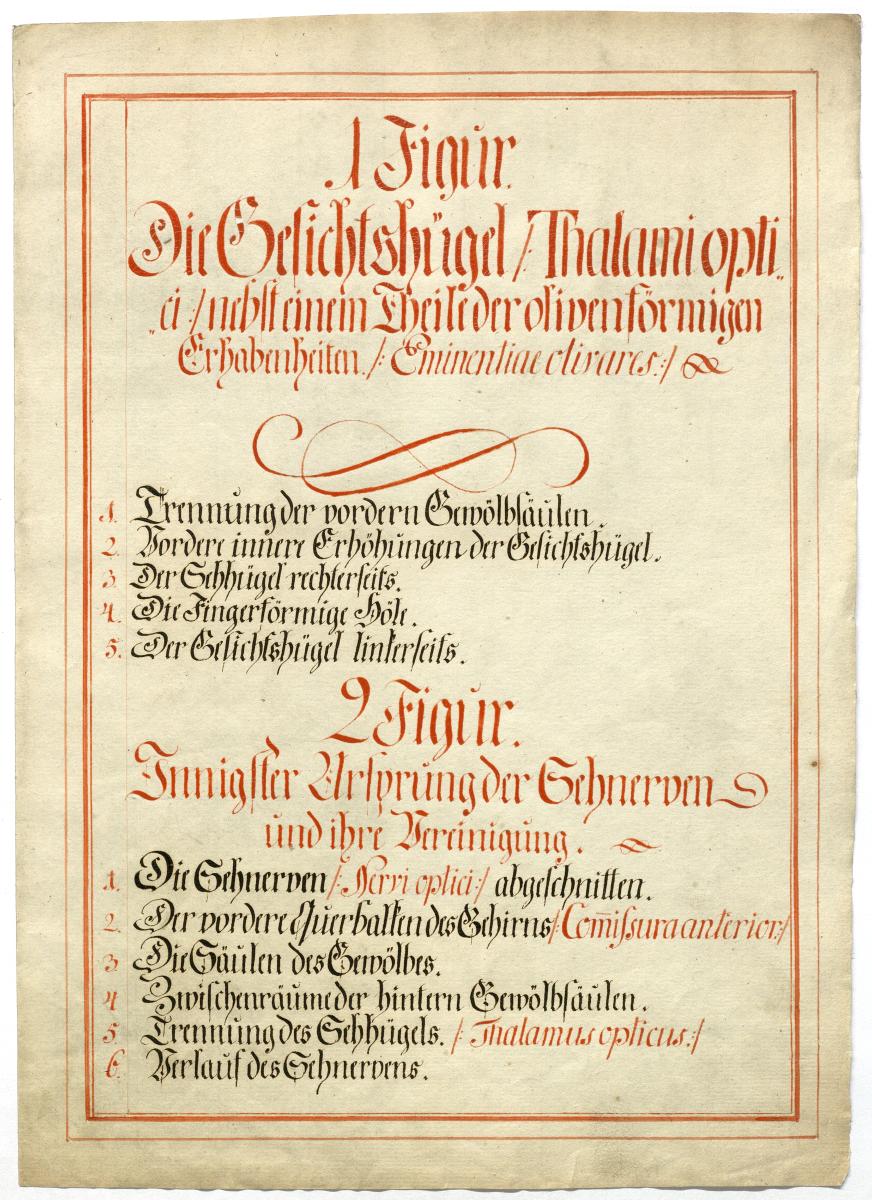 1 Figur.
Die Gesichtshügel /: Thalami opti„
„ci :/ nebst einem Theile der olivenförmigen
Erhabenheiten. /: Eminentiae olivares :/
1. Trennung der vordern Gewölbsäulen.
2. Vordere innere Erhöhungen der Gesichtshügel.
3. Der Sehhügel rechterseits.
4. Die Fingerförmige Höle.
5. Der Gesichtshügel linkerseits.
2 Figur.
Innigster Ursprung der Sehnerven
und ihre Vereinigung.
1. Die Sehnerven /: Nervi optici :/ abgeschnitten.
2. Der vordere Querbalken des Gehirns /: Com̅issura anterior :/
3 Die Säulen des Gewölbes.
4 Zwischenräume der hintern Gewölbsäulen.
5. Trennung des Sehhügels. /: Thalamus opticus :/
6. Verlauf des Sehnervens.